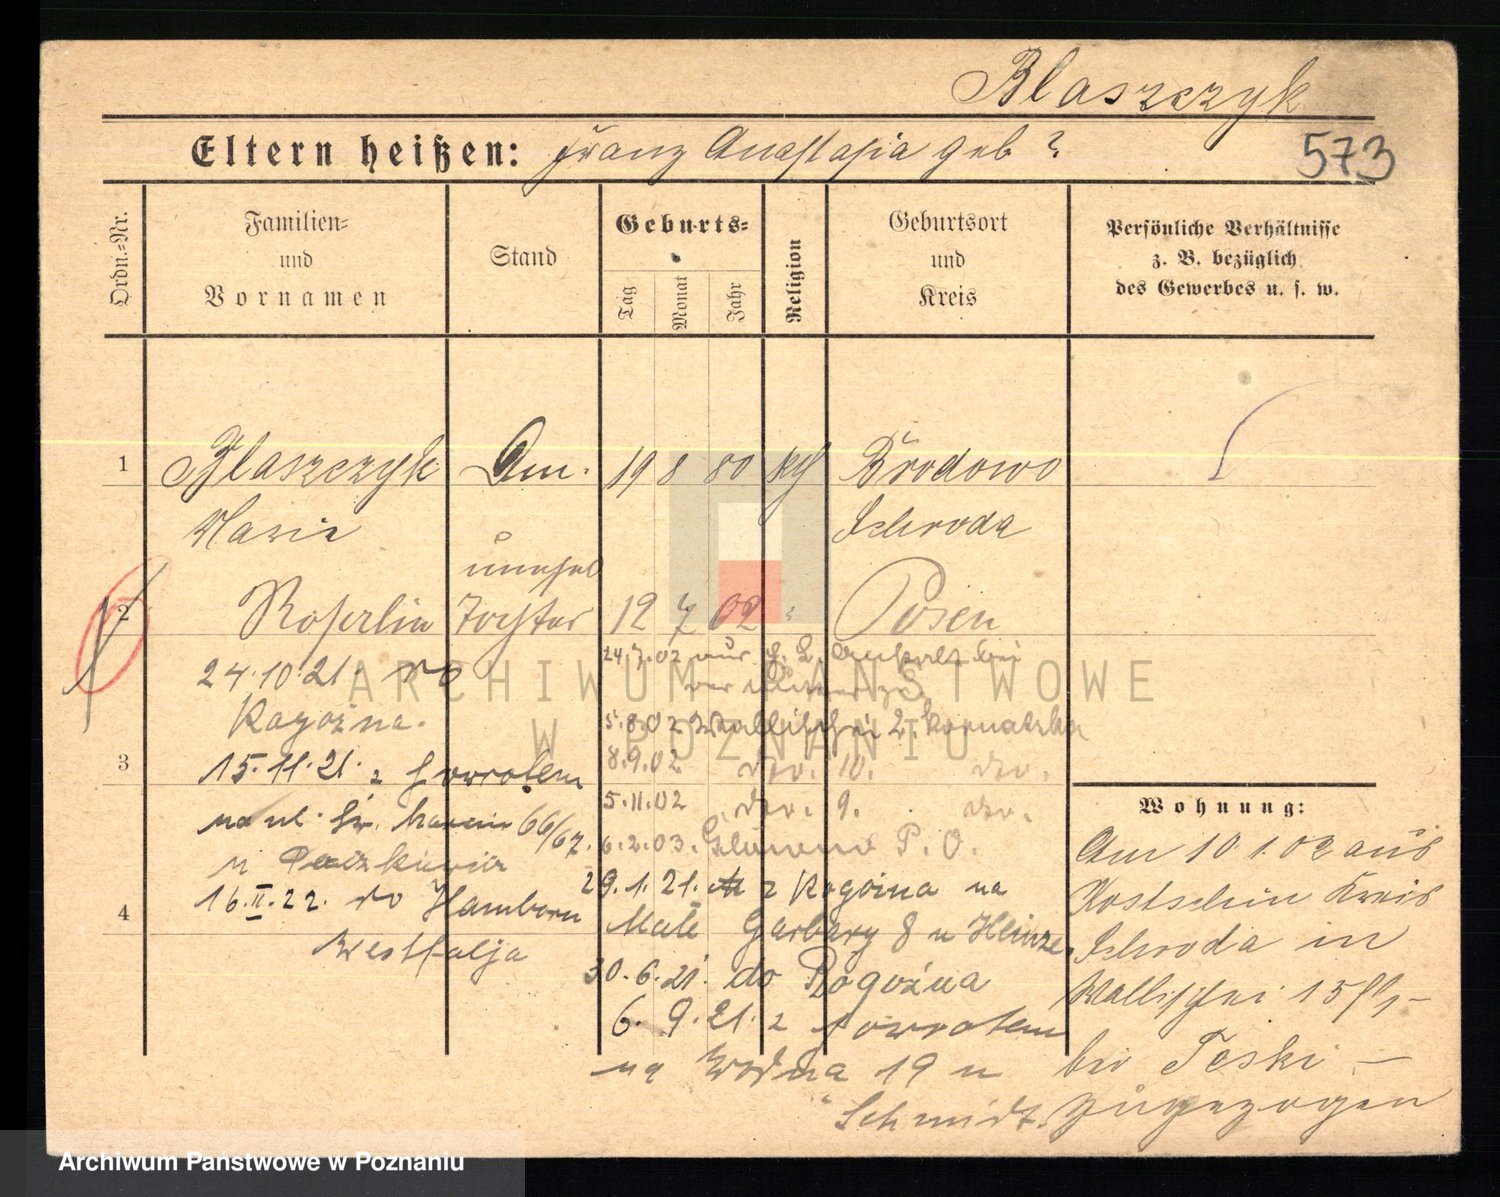 Blaszczyk
573
Eltern heißen: Franz Anastasia geb ?
Ordn.-Nr.
Familien-
und
Vornamen
Stand
Geburts-
Tag
Monat
Jahr
Religion
Geburtsort
und
Kreis
Persönliche Verhältnisse
z. B. bezüglich
des Gewerbes u. s. w.
1 Blaszczyk Am. 19 8 80 kth Brodowo
Marie Schroda
unehel
2 Tochter 12 7 02 " Posen
24.10.21. do
Rogoźna.
3 15.11.21. z powrotem
na ul. Św. Marcin 66/67.
u
16.II.22. do Hamborn
4 Westfalja
24.7.02 aus
5.8.02 Wallischei 2.
8.9.02 dto. 10. dto.
5.11.02 dto. 9. dto.
6.2.03. Glowno P. O.
29.1.21. z Rogoźna na
Małe Garbary 8 u Heinze
30.6.21. do Rogoźna
6. 9. 21. z powrotem
na Wodna 19 u
Schmidt.
Wohnung:
Am 10.1.02 aus
Kostschin Kreis
Schroda in
Wallischei 15
bei Teski –
zugezogen
ARCHIWUM PAŃSTWOWE
W POZNANIU
Archiwum Państwowe w Poznaniu